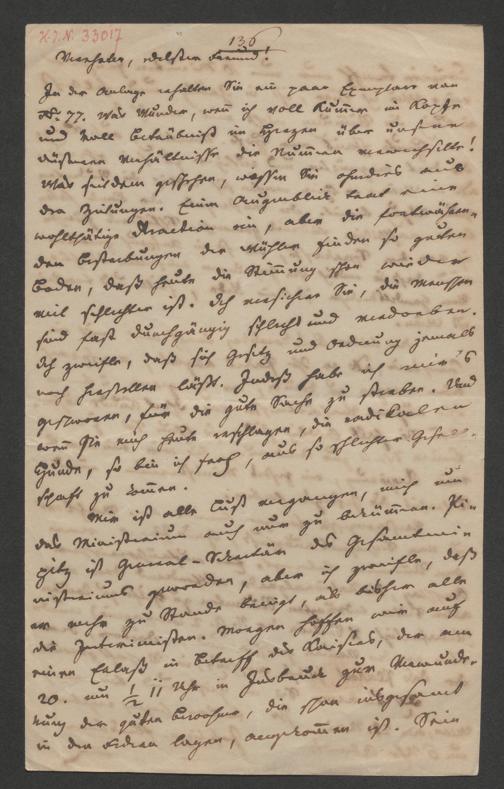 H.I.N. 33017
136
Verehrter, edelster Freund!
In der Anlage erhalten Sie ein paar Exemplare von
Nr. 77. Was Wunder, wenn ich voll Kummer im Kopfe
und voll Betrübniß im Herzen über unsere
wüsten Verhältnisse die Nummern verwechselte!
Was seitdem geschehen, wissen Sie ohndies aus
den Zeitungen. Einen Augenblick trat eine
wohlthätige Reaction ein, aber die fortwähren-
den Bestrebungen der Wühler finden so guten
Boden, daß heute die Stimmung schon wieder
viel schlechter ist. Ich versichere Sie, die Menschen
sind fast durchgängig schlecht und verdorben.
Ich zweifle, daß sich Gesetz und Ordnung jemals
noch herstellen läßt. Indeß habe ich mir's
geschworen, für die gute Sache zu streben. Und
wenn Sie mich heute erschlagen, die radikalen
Hunde, so bin ich froh, aus so schlechter Gesell-
schaft zu kommen.
Mir ist alle Lust vergangen, mich um
das Ministerium auch nur zu bekümmern. Pi-
pitz ist General-Sekretär des Gesammtmi-
nisteriums geworden, aber ich zweifle, daß
er mehr zu Stande bringt, als bisher alle
die Interimisten. Morgen hoffen wir auf
einen Erlaß in Betreff des Kaisers, der am
20. um ½ 11 Uhr in Innsbruck zur Verwunde-
rung der guten Bewohner, die schon insgesammt
in den Federn lagen, angekommen ist. Sein